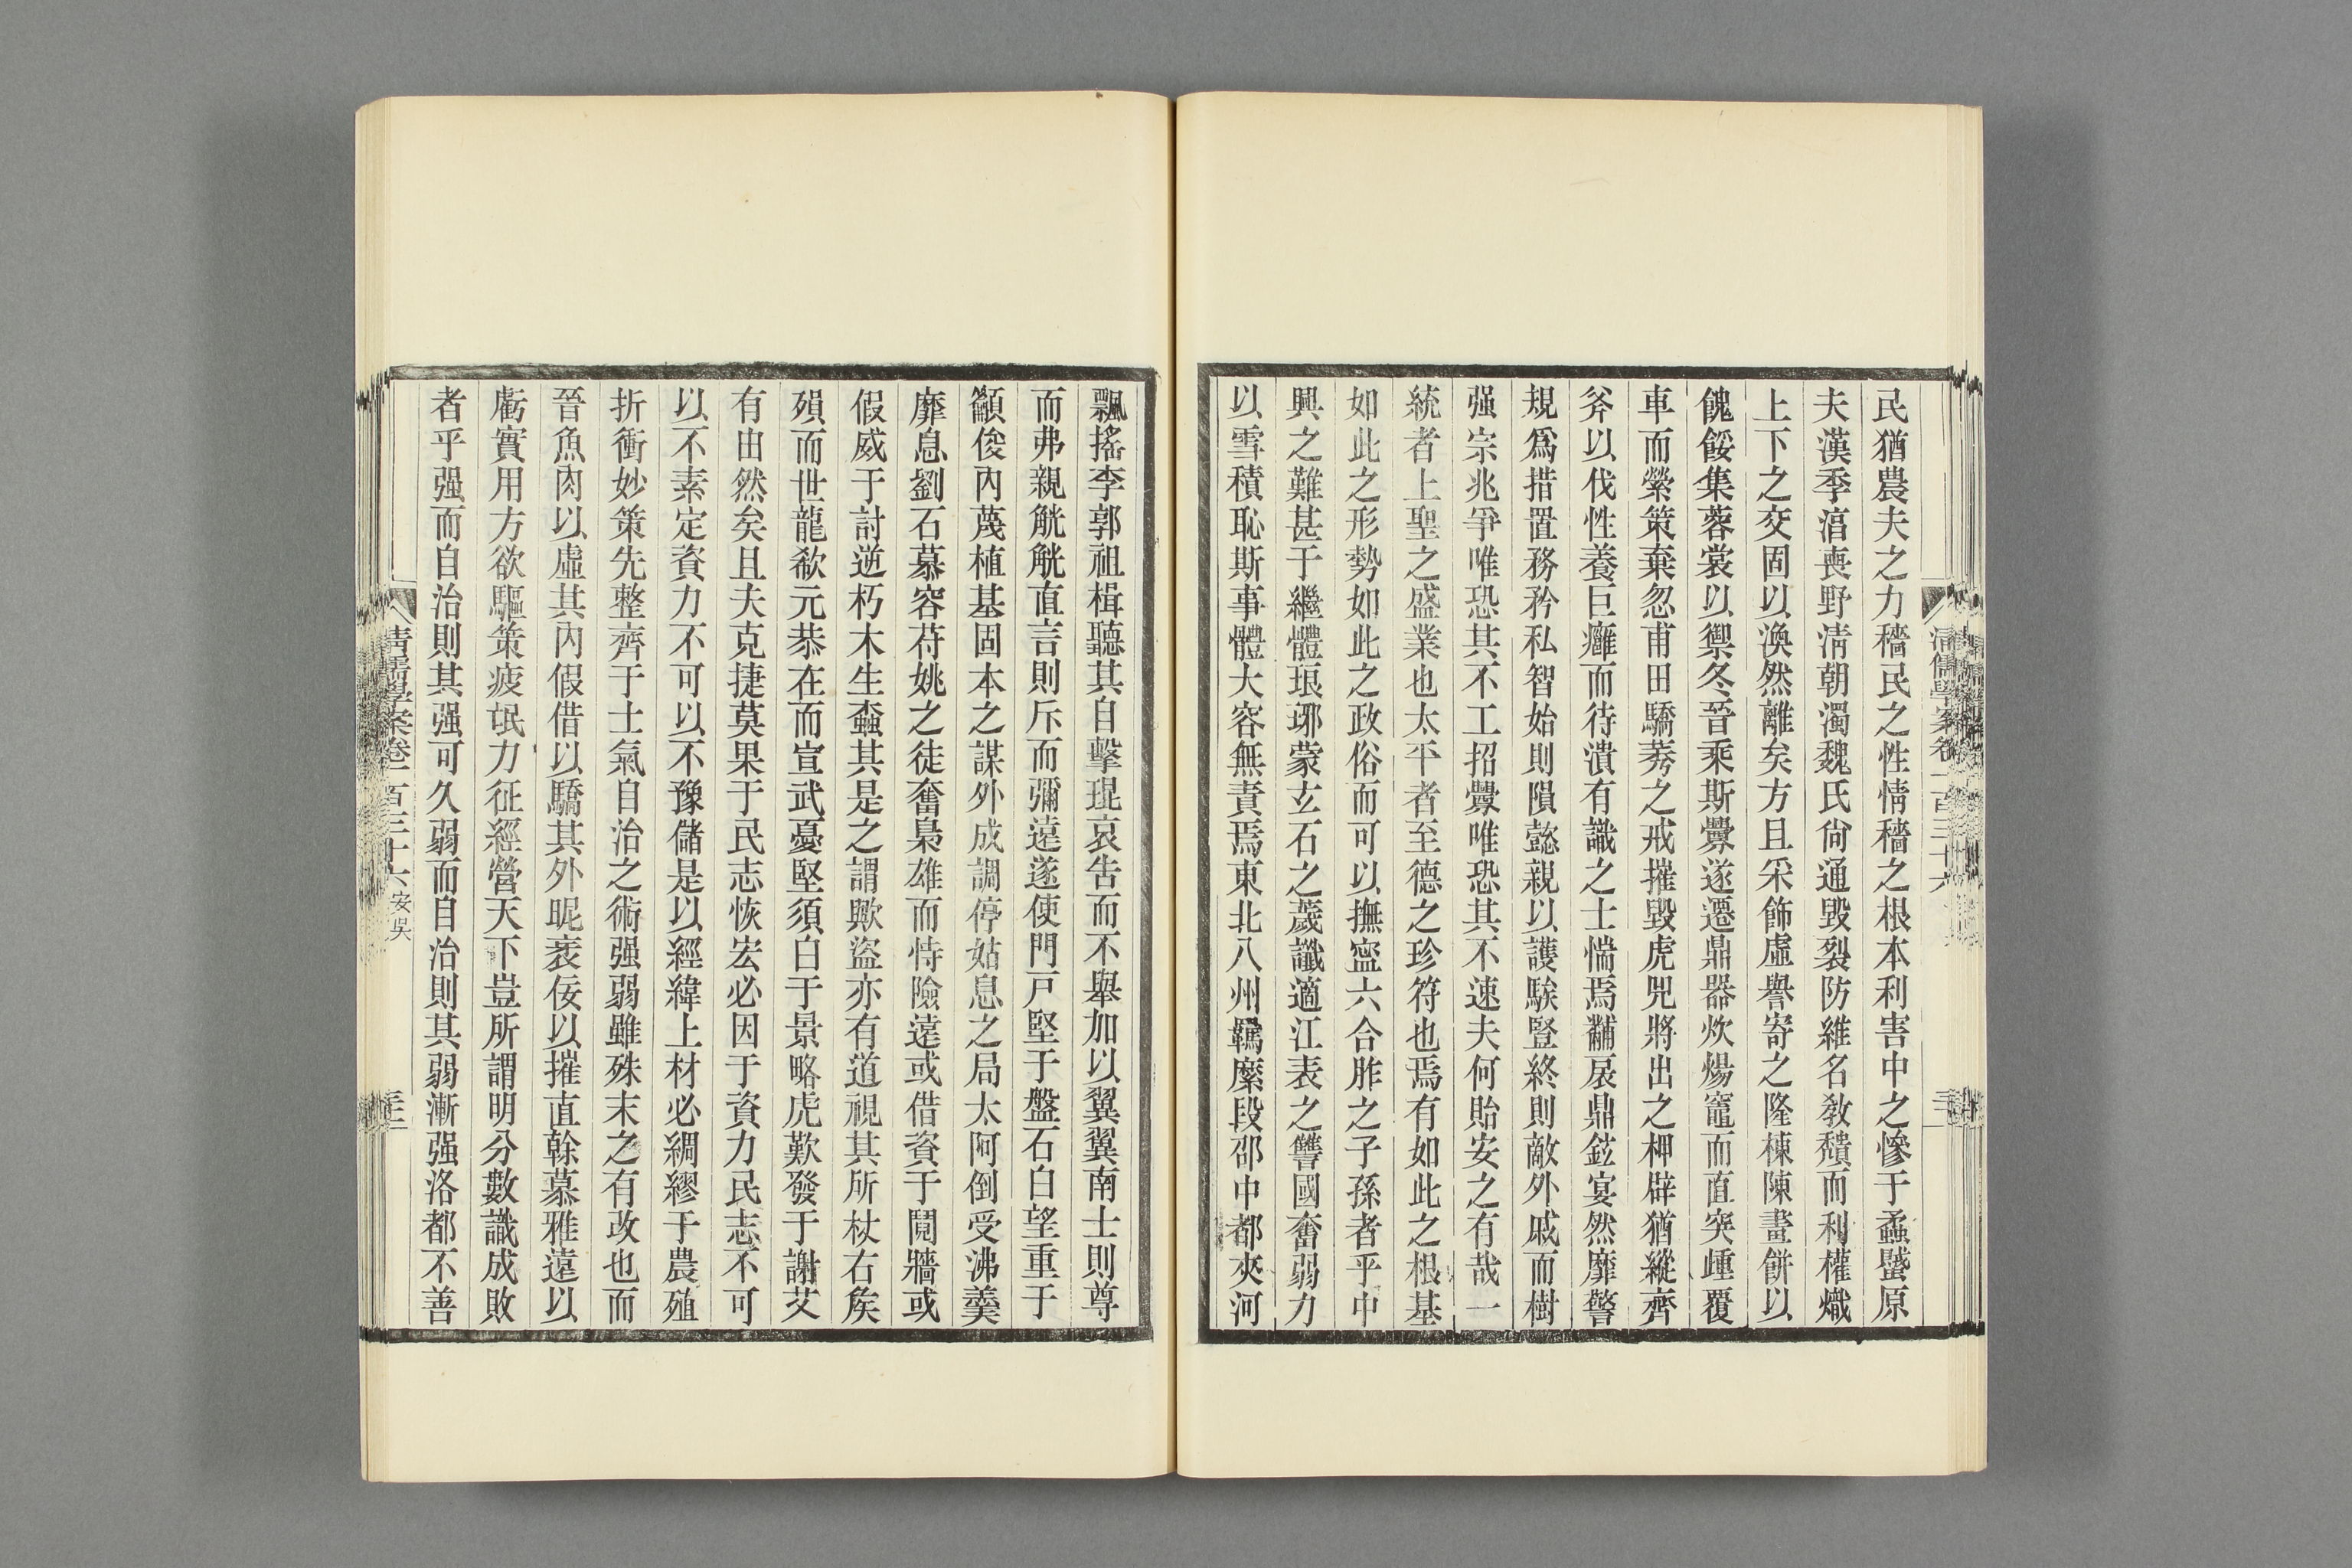 民猶農夫之力穡民之性情穡之根本利害中之慘于螽蟹原
夫漢季湻喪野淸朝濁魏氏尙通毀裂防維名敎穨而利權熾
上下之交固以渙然離矣方且采飾虛譽寄之隆棟陳畫餅以
餽餒集蓉裳以禦冬晉乘斯釁遂遷鼎器炊煬竈而直突歱覆
車而縈策棄忽甫田驕莠之戒摧毀虎兕將出之柙辟猶縱齊
斧以伐性養巨癰而待潰有識之士惴焉黼扆鼎鉉宴然靡警
規爲措置務矜私智始則隕懿親以護騃豎終則敵外戚而樹
强宗兆爭唯恐其不工招釁唯恐其不速夫何貽安之有哉一
統者上聖之盛業也太平者至德之珍符也焉有如此之根基
如此之形勢如此之政俗而可以撫寍六合胙之子孫者乎中
興之難甚于繼體琅琊蒙玄石之薉讖適江表之讐國奮弱力
以雪積恥斯事體大容無責焉東北八州羈縻段邵中都夾河
飄搖李郭祖楫聽其自擊琨哀告而不舉加以翼翼南士則尊
而弗親觥觥直言則斥而彌遠遂使門戸堅于盤石白望重于
籲俊內蔑植基固本之謀外成調停姑息之局太阿倒受沸羹
靡息劉石慕容苻姚之徒奮梟雄而恃險遠或借資于鬩牆或
假威于討逆朽木生蠧其是之謂歟盜亦有道視其所杖右矦
殞而世龍欷元恭在而宣武憂堅須白于景略虎歎發于謝艾
有由然矣且夫克捷莫果于民志恢宏必因于資力民志不可
以不素定資力不可以不豫儲是以經緯上材必綢繆于農殖
折衝妙策先整齊于士氣自治之術强弱雖殊末之有改也而
晉魚肉以虛其內假借以驕其外昵袤佞以摧直榦慕雅遠以
虧實用方欲驅策疲氓力征經營天下豈所謂明分數識成敗
者乎强而自治則其强可久弱而自治則其弱漸强洛都不善
淸儒學案卷一百三十六 安吳